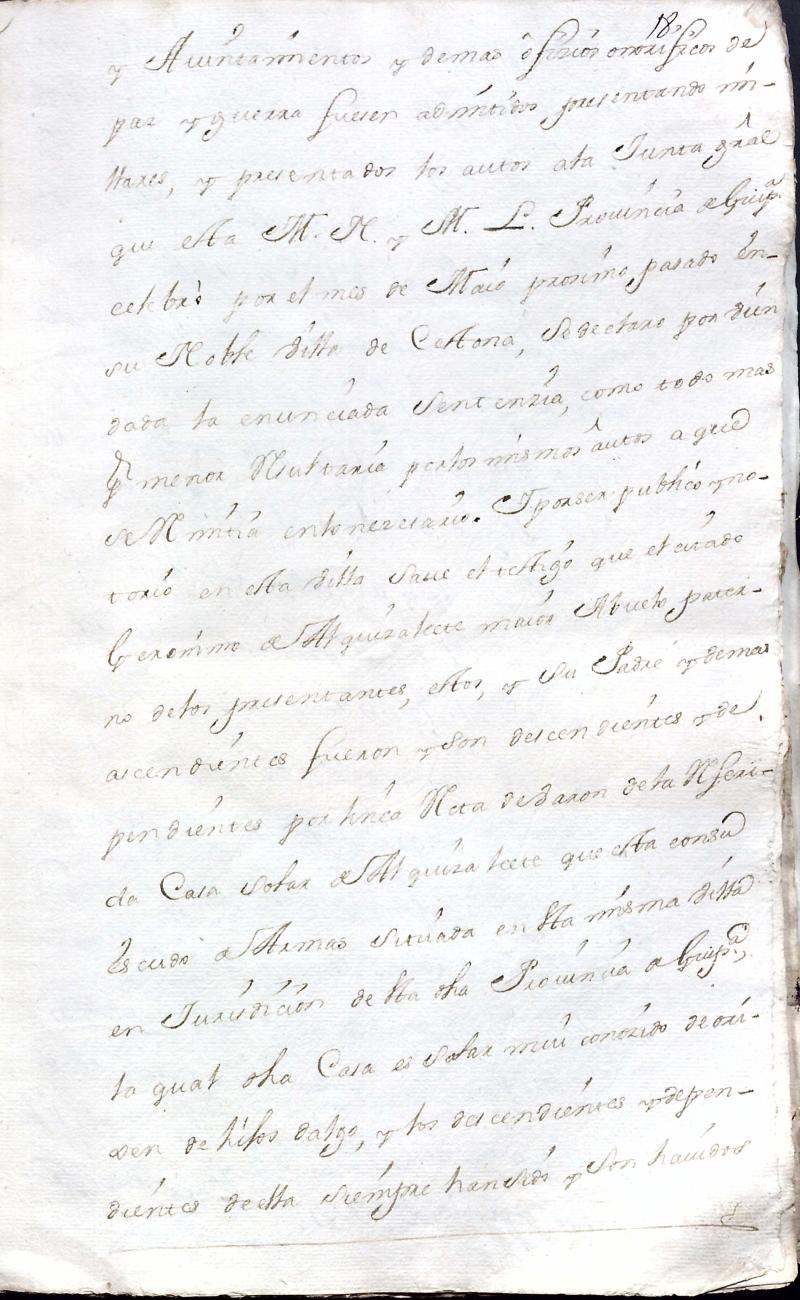 18,
y Aiuntamientos y demas ofizios onorificos de
paz y guerra fuesen admitidos presentando mi-
llares, y presentados los autos ala Junta gral
que esta M. N. y M. L. Provincia de Guipª.
celebrò por el mes de Maio proximo pasado en-
su Noble Villa de Cestona, se declaro por vien
dada la enunciada Sentenzia, como todo mas
pr menor Resultaria por los mismos autos a que
se Remitia en lo nezesario. I por ser publico y no-
torio en esta Villa save el testigo que el citado
Geronimo de Alquizalete maior Abuelo pater-
no de los presentantes, estos, y su Padre y demas
ascendientes fueron y son descendientes y de
pendientes por linea Recta de Baron de la Referi-
da Casa solar de Alquizalete que esta con su
escudo de Armas situada en esta misma Villa
en Jurisdicion de esta dha Provincia de Guipª,
la qual dha Casa es solar mui conozido de ori-
xen de hijos dalgo, y los descendientes y depen-
dientes de ella siempre han sido y son havidos